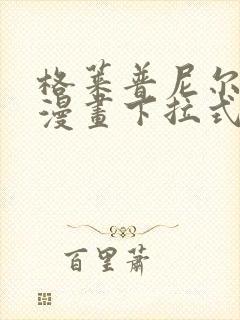 格莱普尼尔
漫畫下拉式
百里蕭